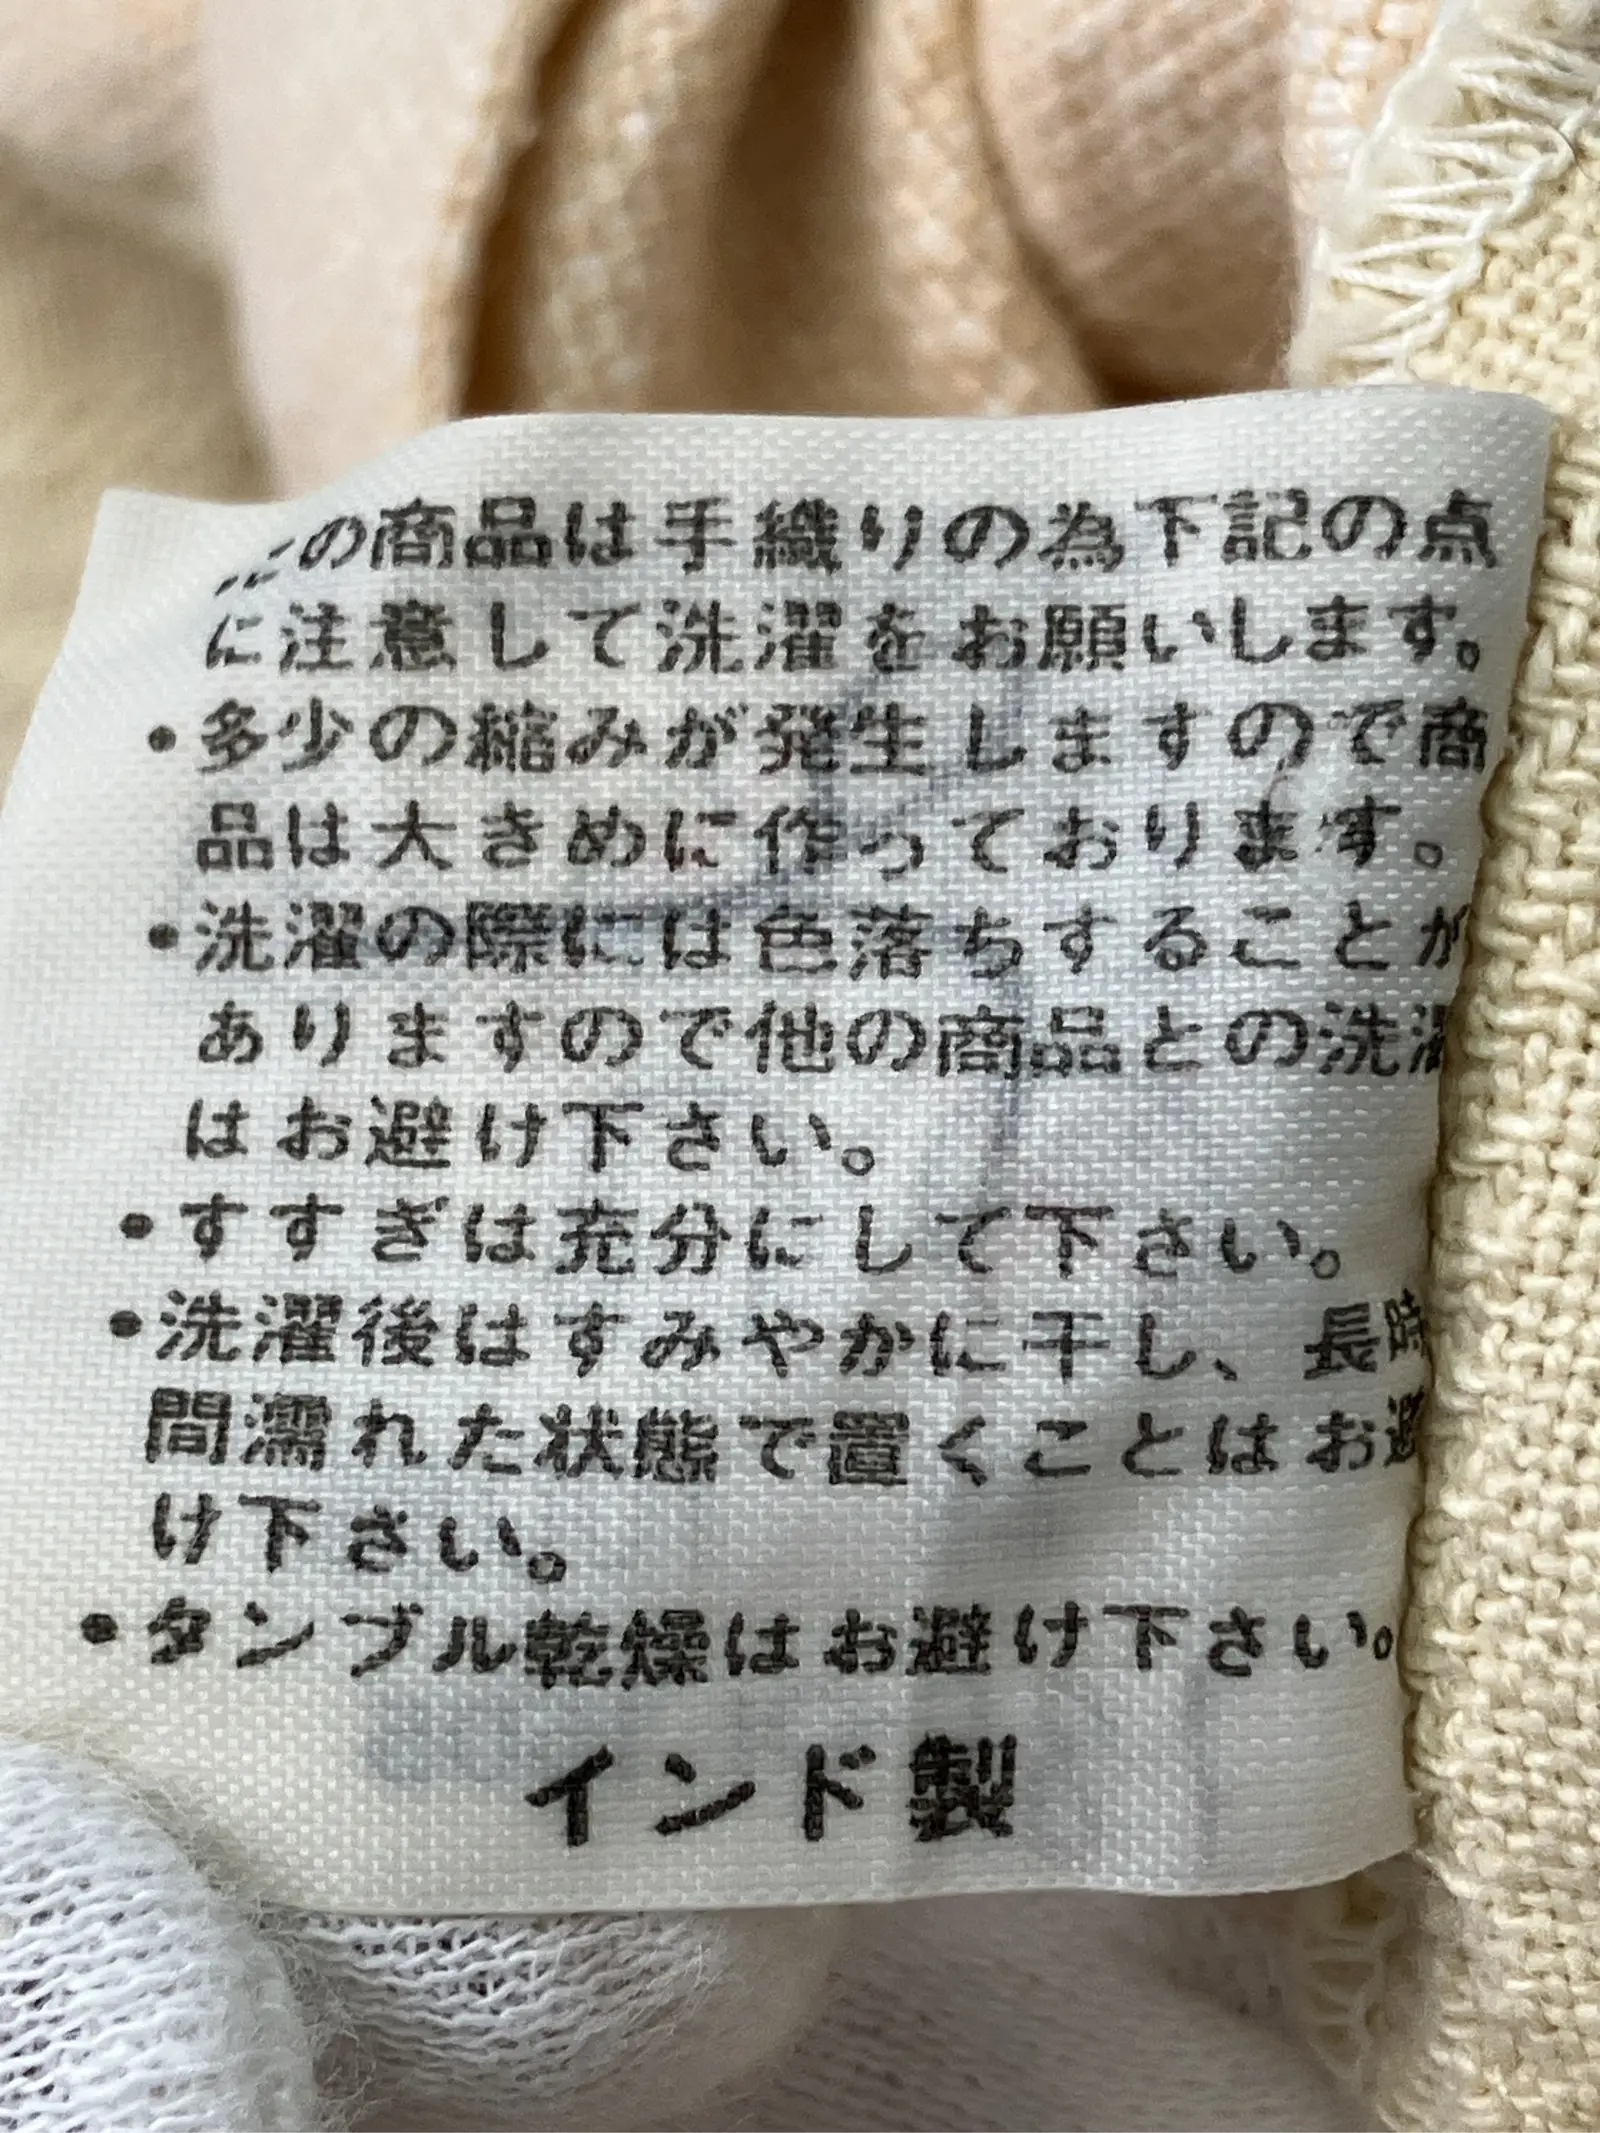 この商品は手織りの為下記の点
に注意して洗濯をお願いします。
・多少の縮みが発生しますので商
品は大きめに作っております。
・洗濯の際には色落ちすることが
ありますので他の商品との洗濯
はお避け下さい。
・すすぎは充分にして下さい。
・洗濯後はすみやかに干し、長時
間濡れた状態で置くことはお避
け下さい。
・タンブル乾燥はお避け下さい。
インド製